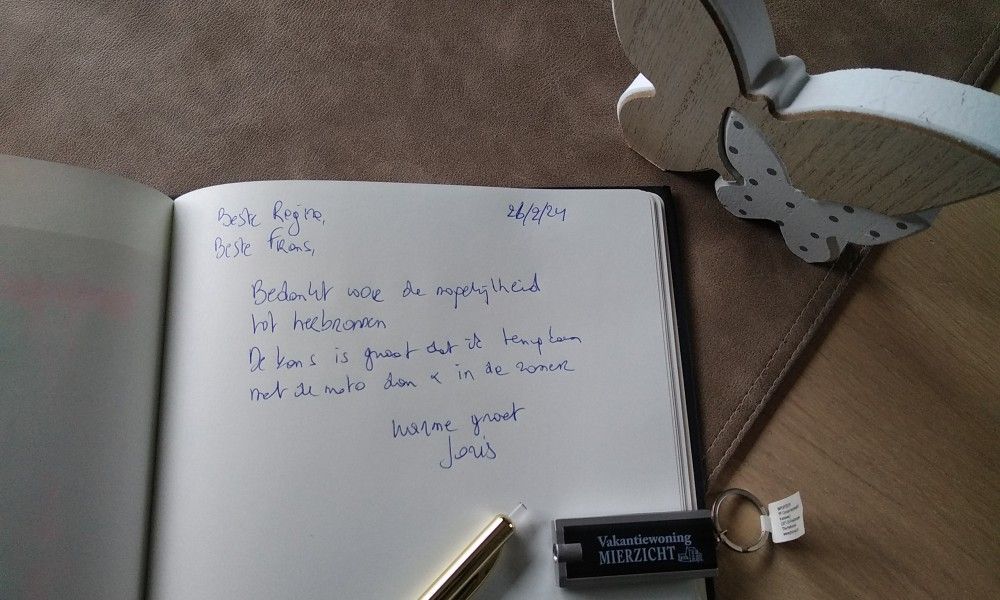 Beste Regine, 26/2/24
Beste Frans,
Bedankt voor de mogelijkheid
tot herbronnen
De kans is groot dat ik terug kom
met de moto dan in de zomer
Warme groet
Joris
Vakantiewoning
MIERZICHT